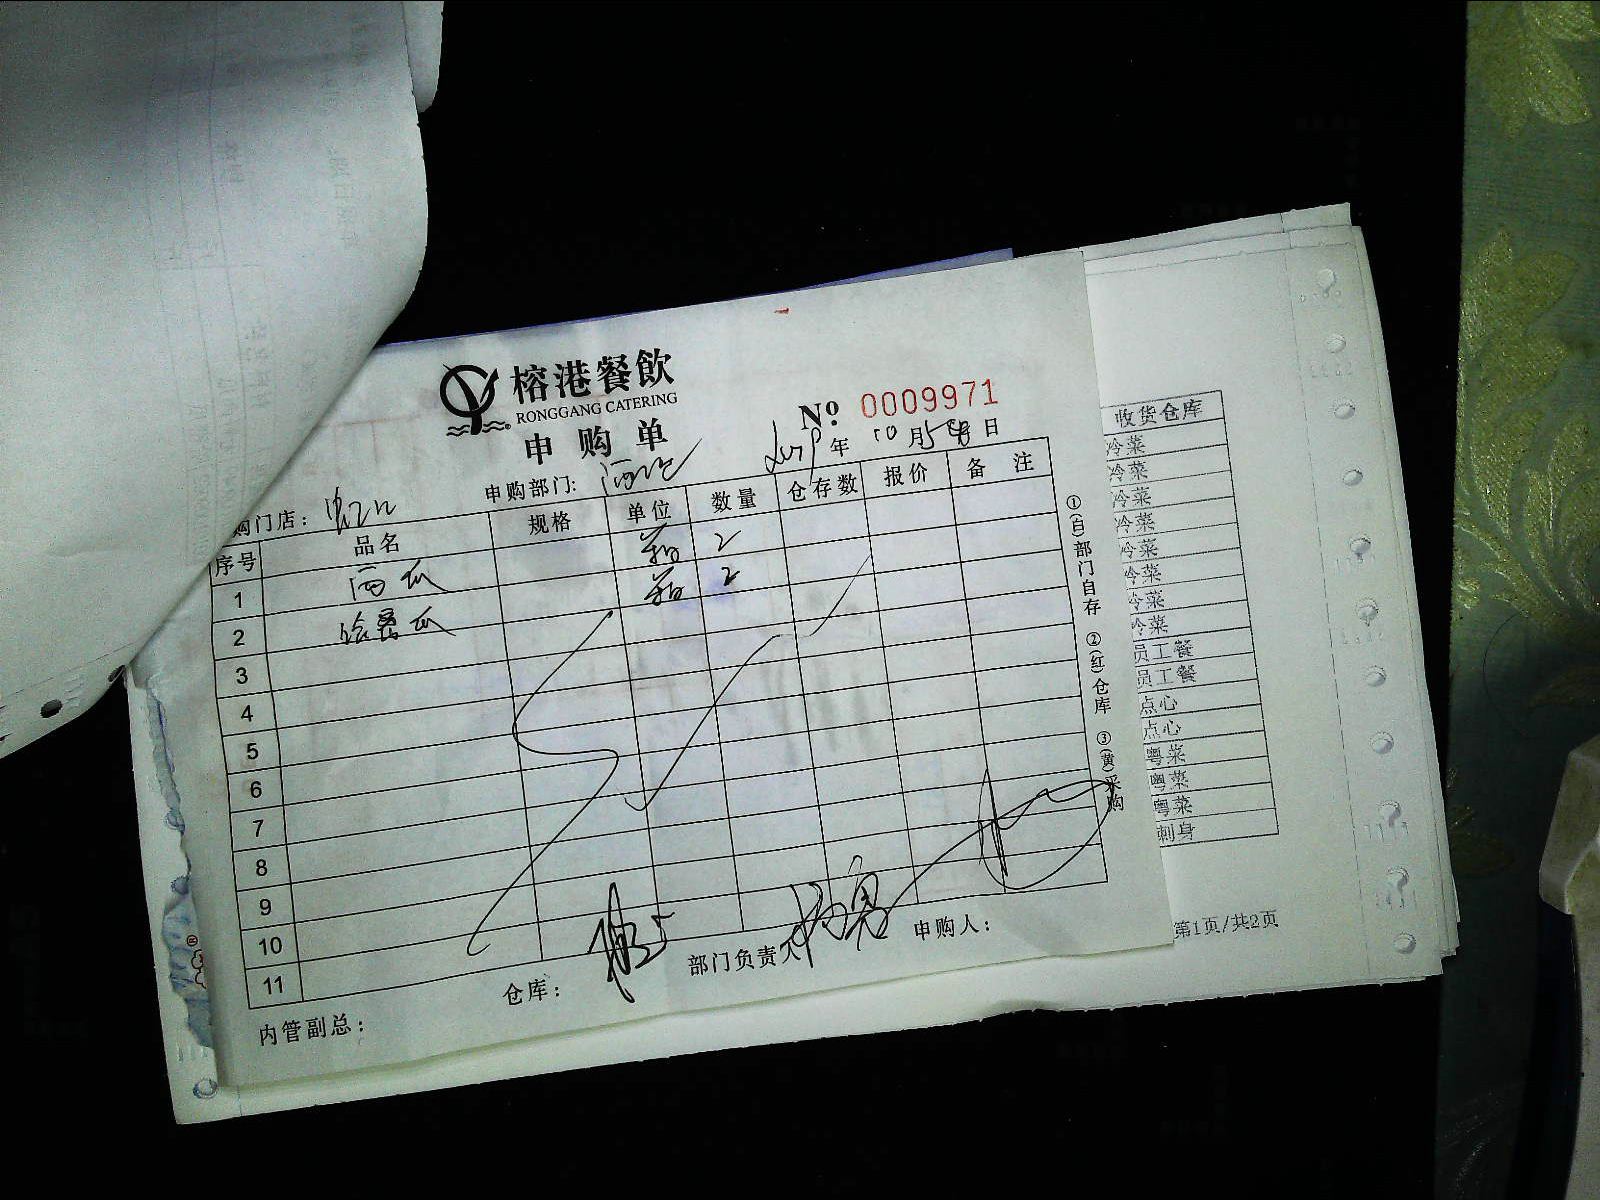 榕港餐飲
RONGGANG CATERING
申购单
№ 0009971
年 10 月 日
购门店:
申购部门:
序号 品名 规格 单位 数量 仓存数 报价 备注
1 西瓜 箱 2
2 哈蜜瓜 箱 2
3
4
5
6
7
8
9
10
11
仓库:
部门负责人
申购人:
内管副总:
①(白)部门自存 ②(红)仓库 ③(黄)采购
收货仓库
冷菜
冷菜
冷菜
冷菜
冷菜
冷菜
冷菜
冷菜
员工餐
员工餐
点心
点心
粤菜
粤菜
粤菜
刺身
第1页/共2页